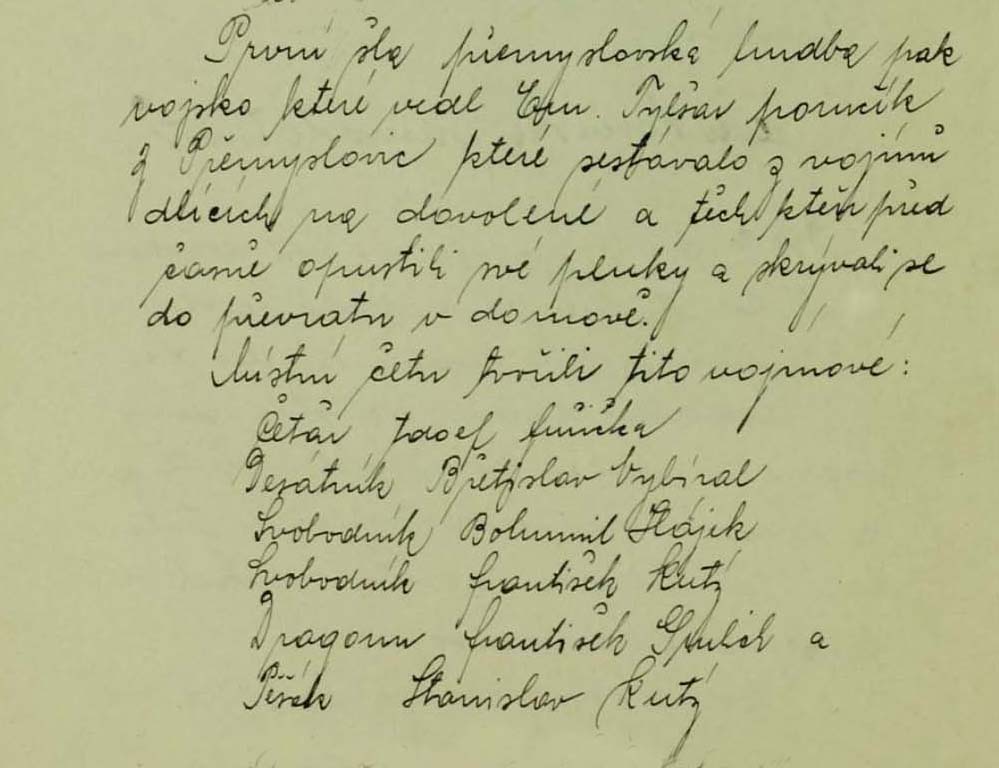 První šla přemyslovská hudba pak
vojsko které vedl Em. Tylšar poručík
z Přemyslovic které sestávalo z vojínů
dlících na dovolené a těch kteří před
časně opustili své pluky a skrývali se
do převratu v domově.
Místní četu tvořili tito vojínové:
Četař Josef
Desátník Břetislav Vybíral
Svobodník Bohumil Hájek
Svobodník František Kutý
Dragoun František Grulich a
Pěšák Stanislav Kutý